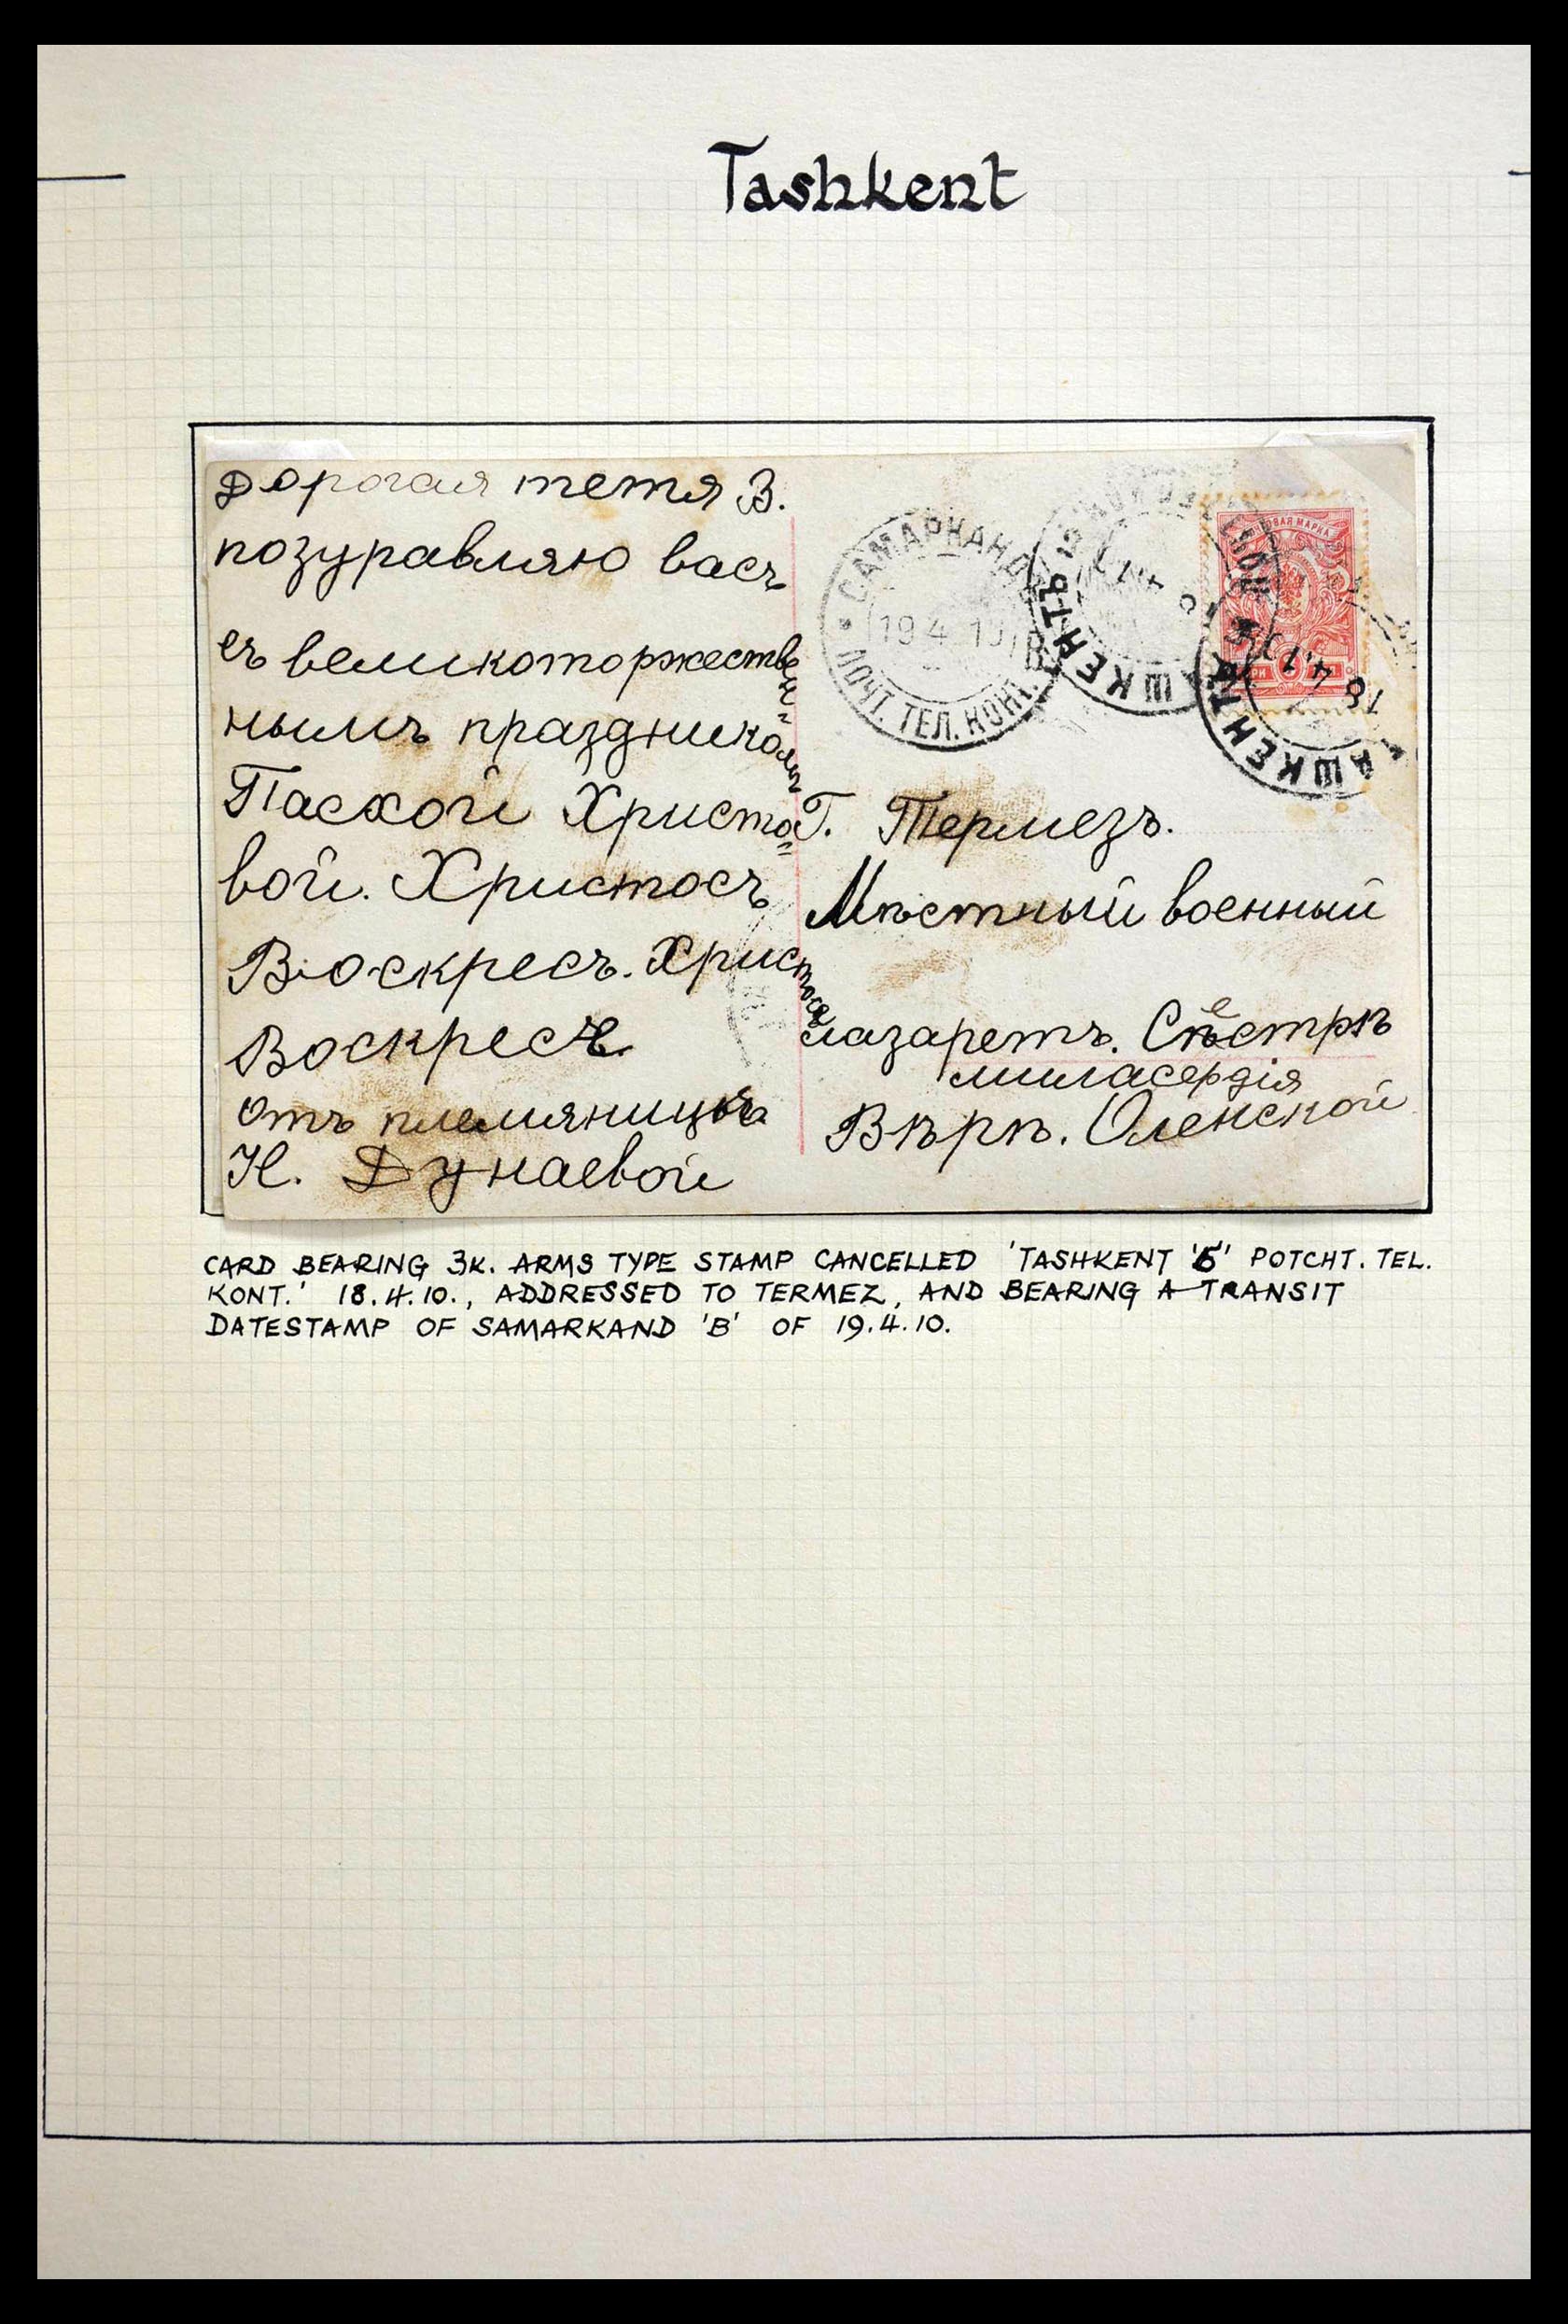 Tashkent
Дорогая тетя В.
позуравляю васъ
съ великоторжествен-
нымъ праздникомъ
Пасхой Христо=
вой. Христосъ
Воскресъ. Христосъ
Воскресъ.
отъ племяницы
Н. Дунаевой
САМАРКАНДЪ
19 4 10
ПОЧТ. ТЕЛ. КОНТ.
ТАШКЕНТЪ
18 4.10
ТАШКЕНТЪ
Г. Термезъ.
Мѣстный военный
лазаретъ. Сестрѣ
миласердія
Вѣрѣ. Оленской
CARD BEARING 3K. ARMS TYPE STAMP CANCELLED 'TASHKENT 'Б' POTCHT. TEL.
KONT.' 18.4.10., ADDRESSED TO TERMEZ, AND BEARING A TRANSIT
DATESTAMP OF SAMARKAND 'B' OF 19.4.10.